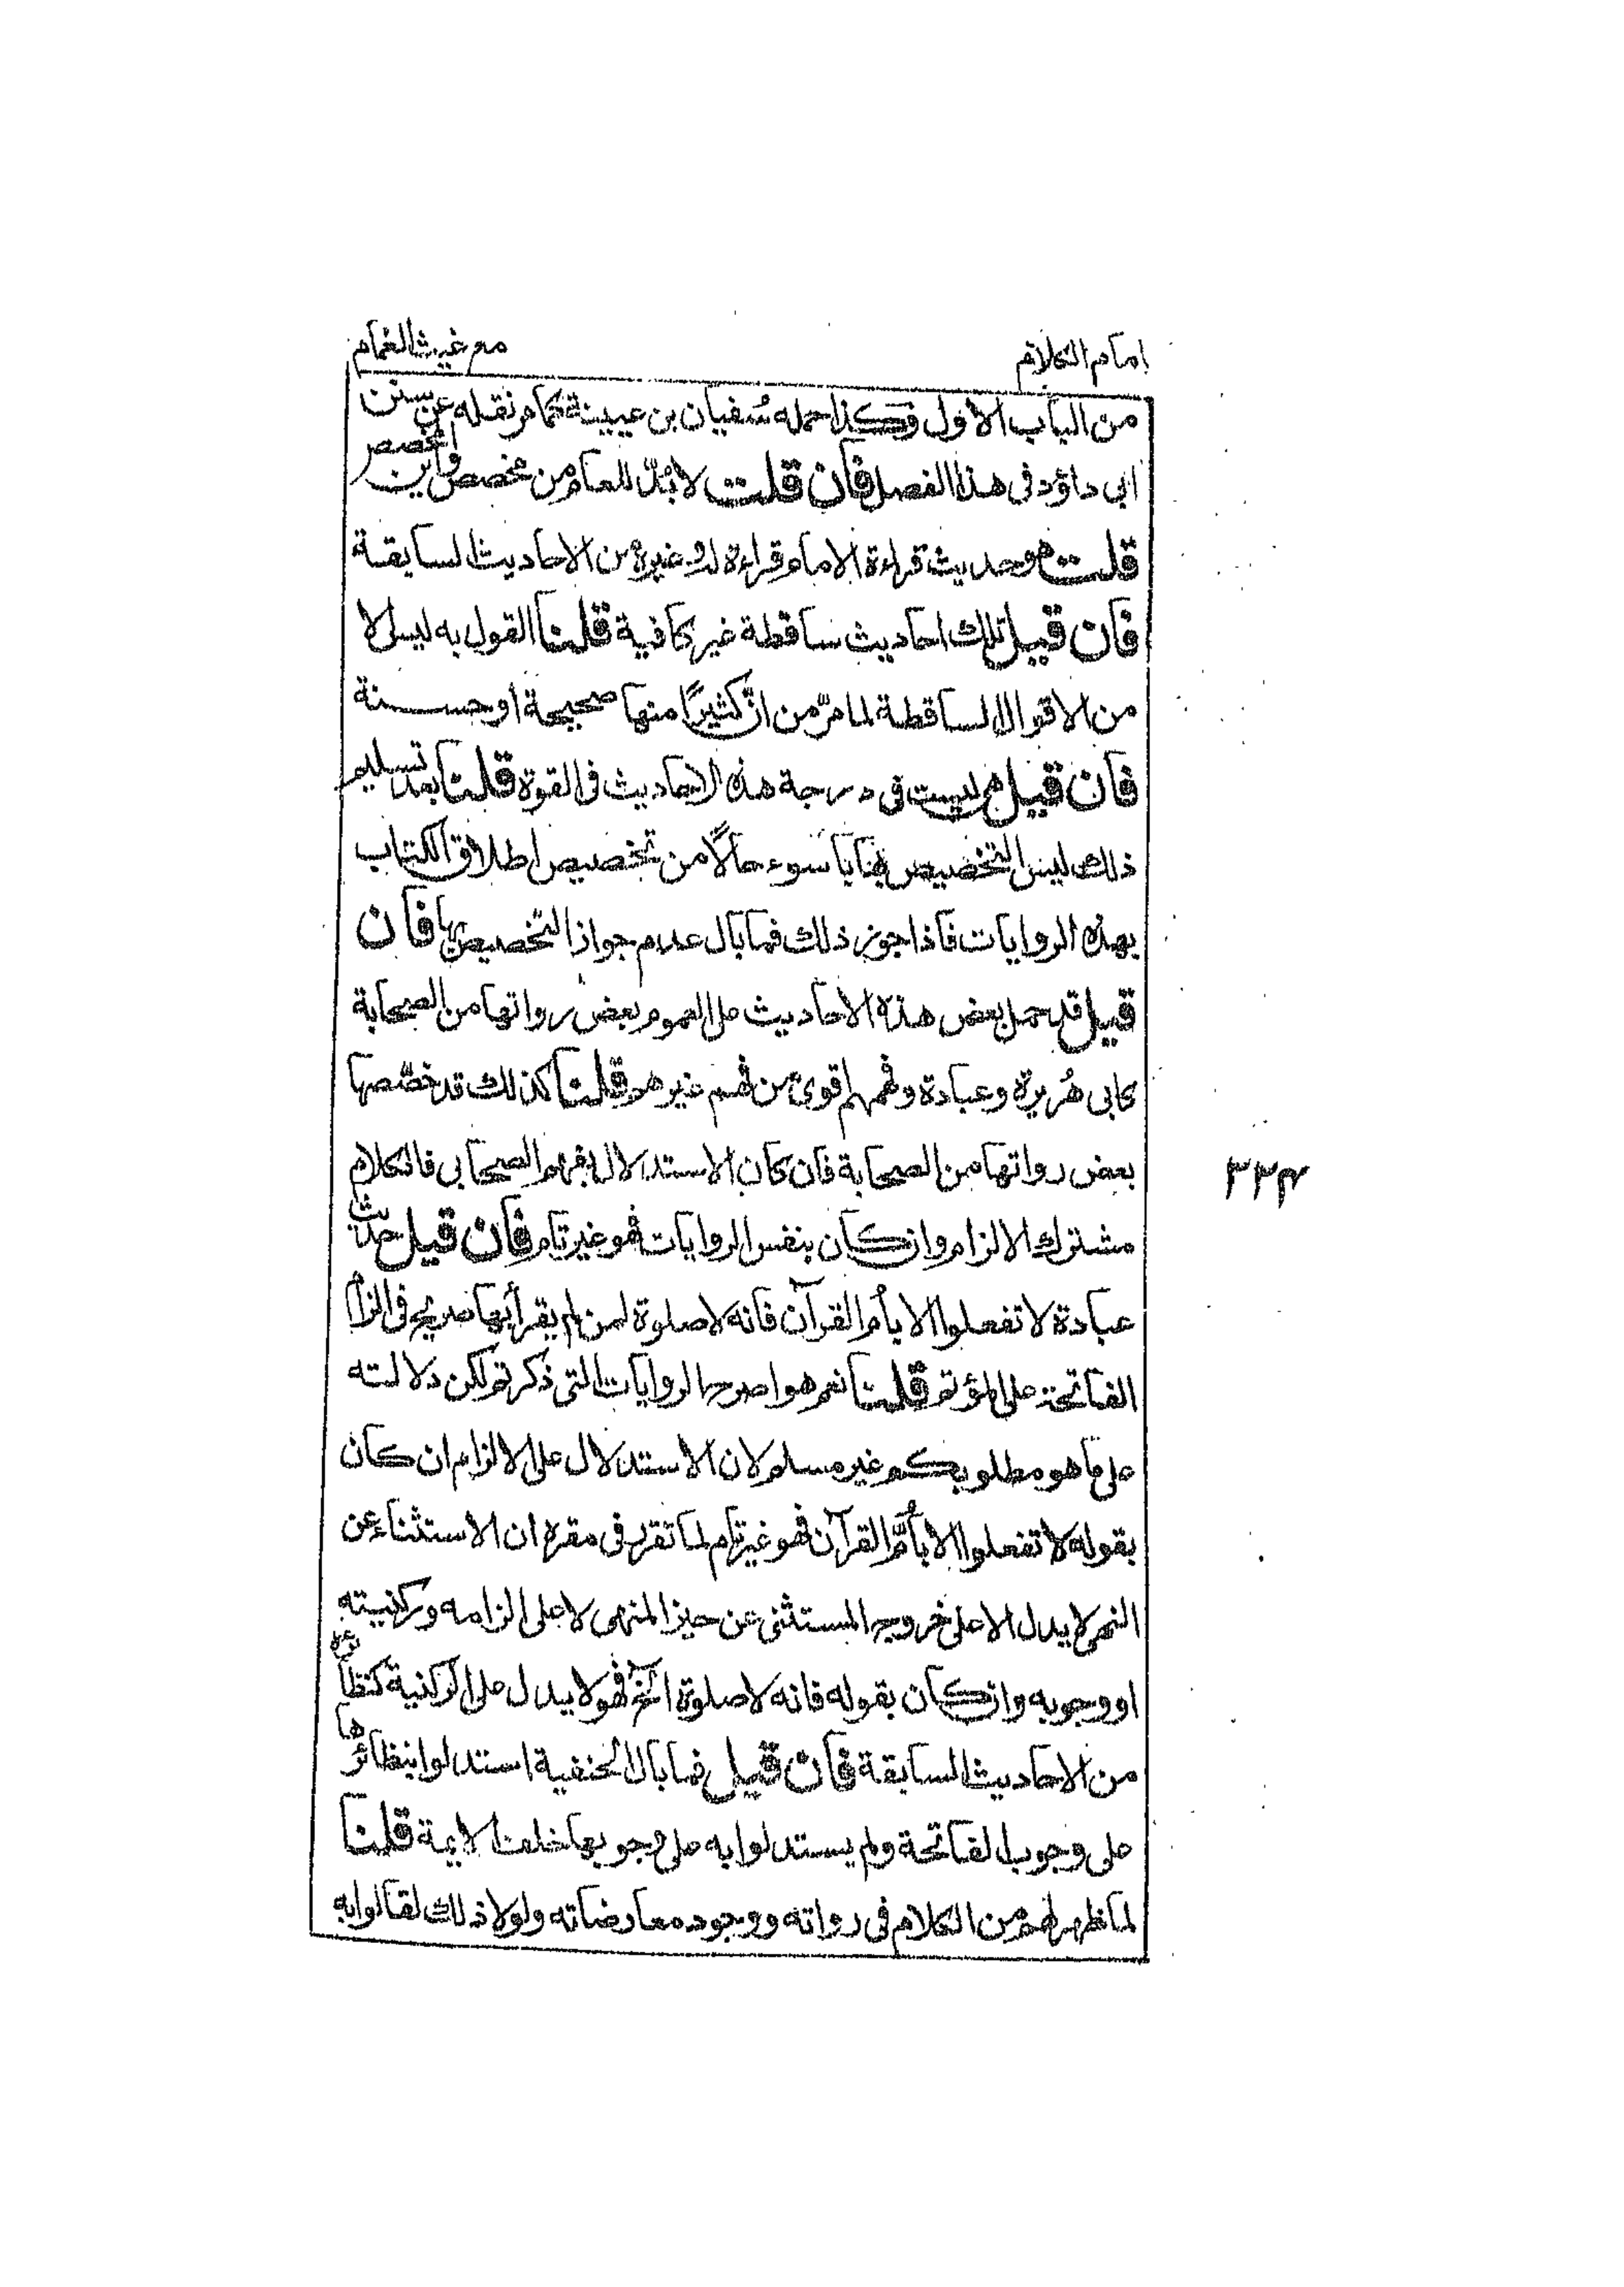 امام الكلام
مع غيث الغمام
من الباب الاول وكذا حمله سُفيان بن عيينة كما مر نقله عن سنن
ابي داؤد فى هذا الفصل فان قلت لا بُدّ للعام من مخصص واين المخصص
قلت هو حديث قراءة الامام قراءة له وغيره من الاحاديث السابقة
فان قيل تلك احاديث ساقطة غير كافية قلنا القول به ليس الا
من الاقوال الساقطة لما مرّ من انّ كثيرًا منها صحيحة او حسنة
فان قيل هى ليست فى درجة هذه الاحاديث فى القوة قلنا بعد تسليم
ذلك ليس التخصيص بها باسوء حالًا من تخصيص اطلاق الكتاب
بهذه الروايات فاذا جوز ذلك فما بال عدم جواز التخصيص بها فان
قيل قد حمل بعض هذه الاحاديث على العموم بعض رواتها من الصحابة
كابى هُريرة وعبادة وفهمهم اقوى من فهم غيرهم قلنا كذلك قد خصّصها
بعض رواتها من الصحابة فان كان الاستدلال بفهم الصحابى فالكلام
مشترك الالزام وان كان بنفس الروايات فهو غير تام فان قيل حديث
عبادة لا تفعلوا الا بأم القرآن فانه لا صلوة لمن لم يقرأ بها صريح فى الزام
الفاتحة على المؤتم قلنا نعم هو اصرح الروايات التى ذكرتم لكن دلالته
على ما هو مطلوبكم غير مسلم لان الاستدلال على الالزام ان كان
بقوله لا تفعلوا الا بأمّ القرآن فهو غير تام لما تقرر فى مقره ان الاستثناء عن
النهى لا يدل الا على خروج المستثنى عن حيز المنهى لا على الزامه وركنيته
او وجوبه وان كان بقوله فانه لا صلوة الخ فهو لا يدل على الركنية كنظائره
من الاحاديث السابقة فان قيل فما بال الحنفية استدلوا بنظائرها
على وجوب الفاتحة ولم يستدلوا به على وجوبها خلف الايمة قلنا
لما ظهر لهم من الكلام فى رواته ووجود معارضاته ولولا ذلك لقالوا به
٣٣٤